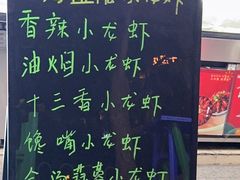 香辣小龙虾
油焖小龙虾
十三香小龙虾
馋嘴小龙虾
蒜蓉小龙虾